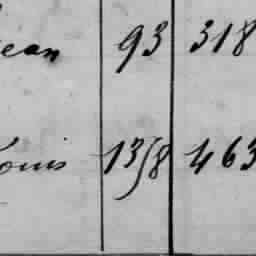 Jean 93 318
Louis 1358 463